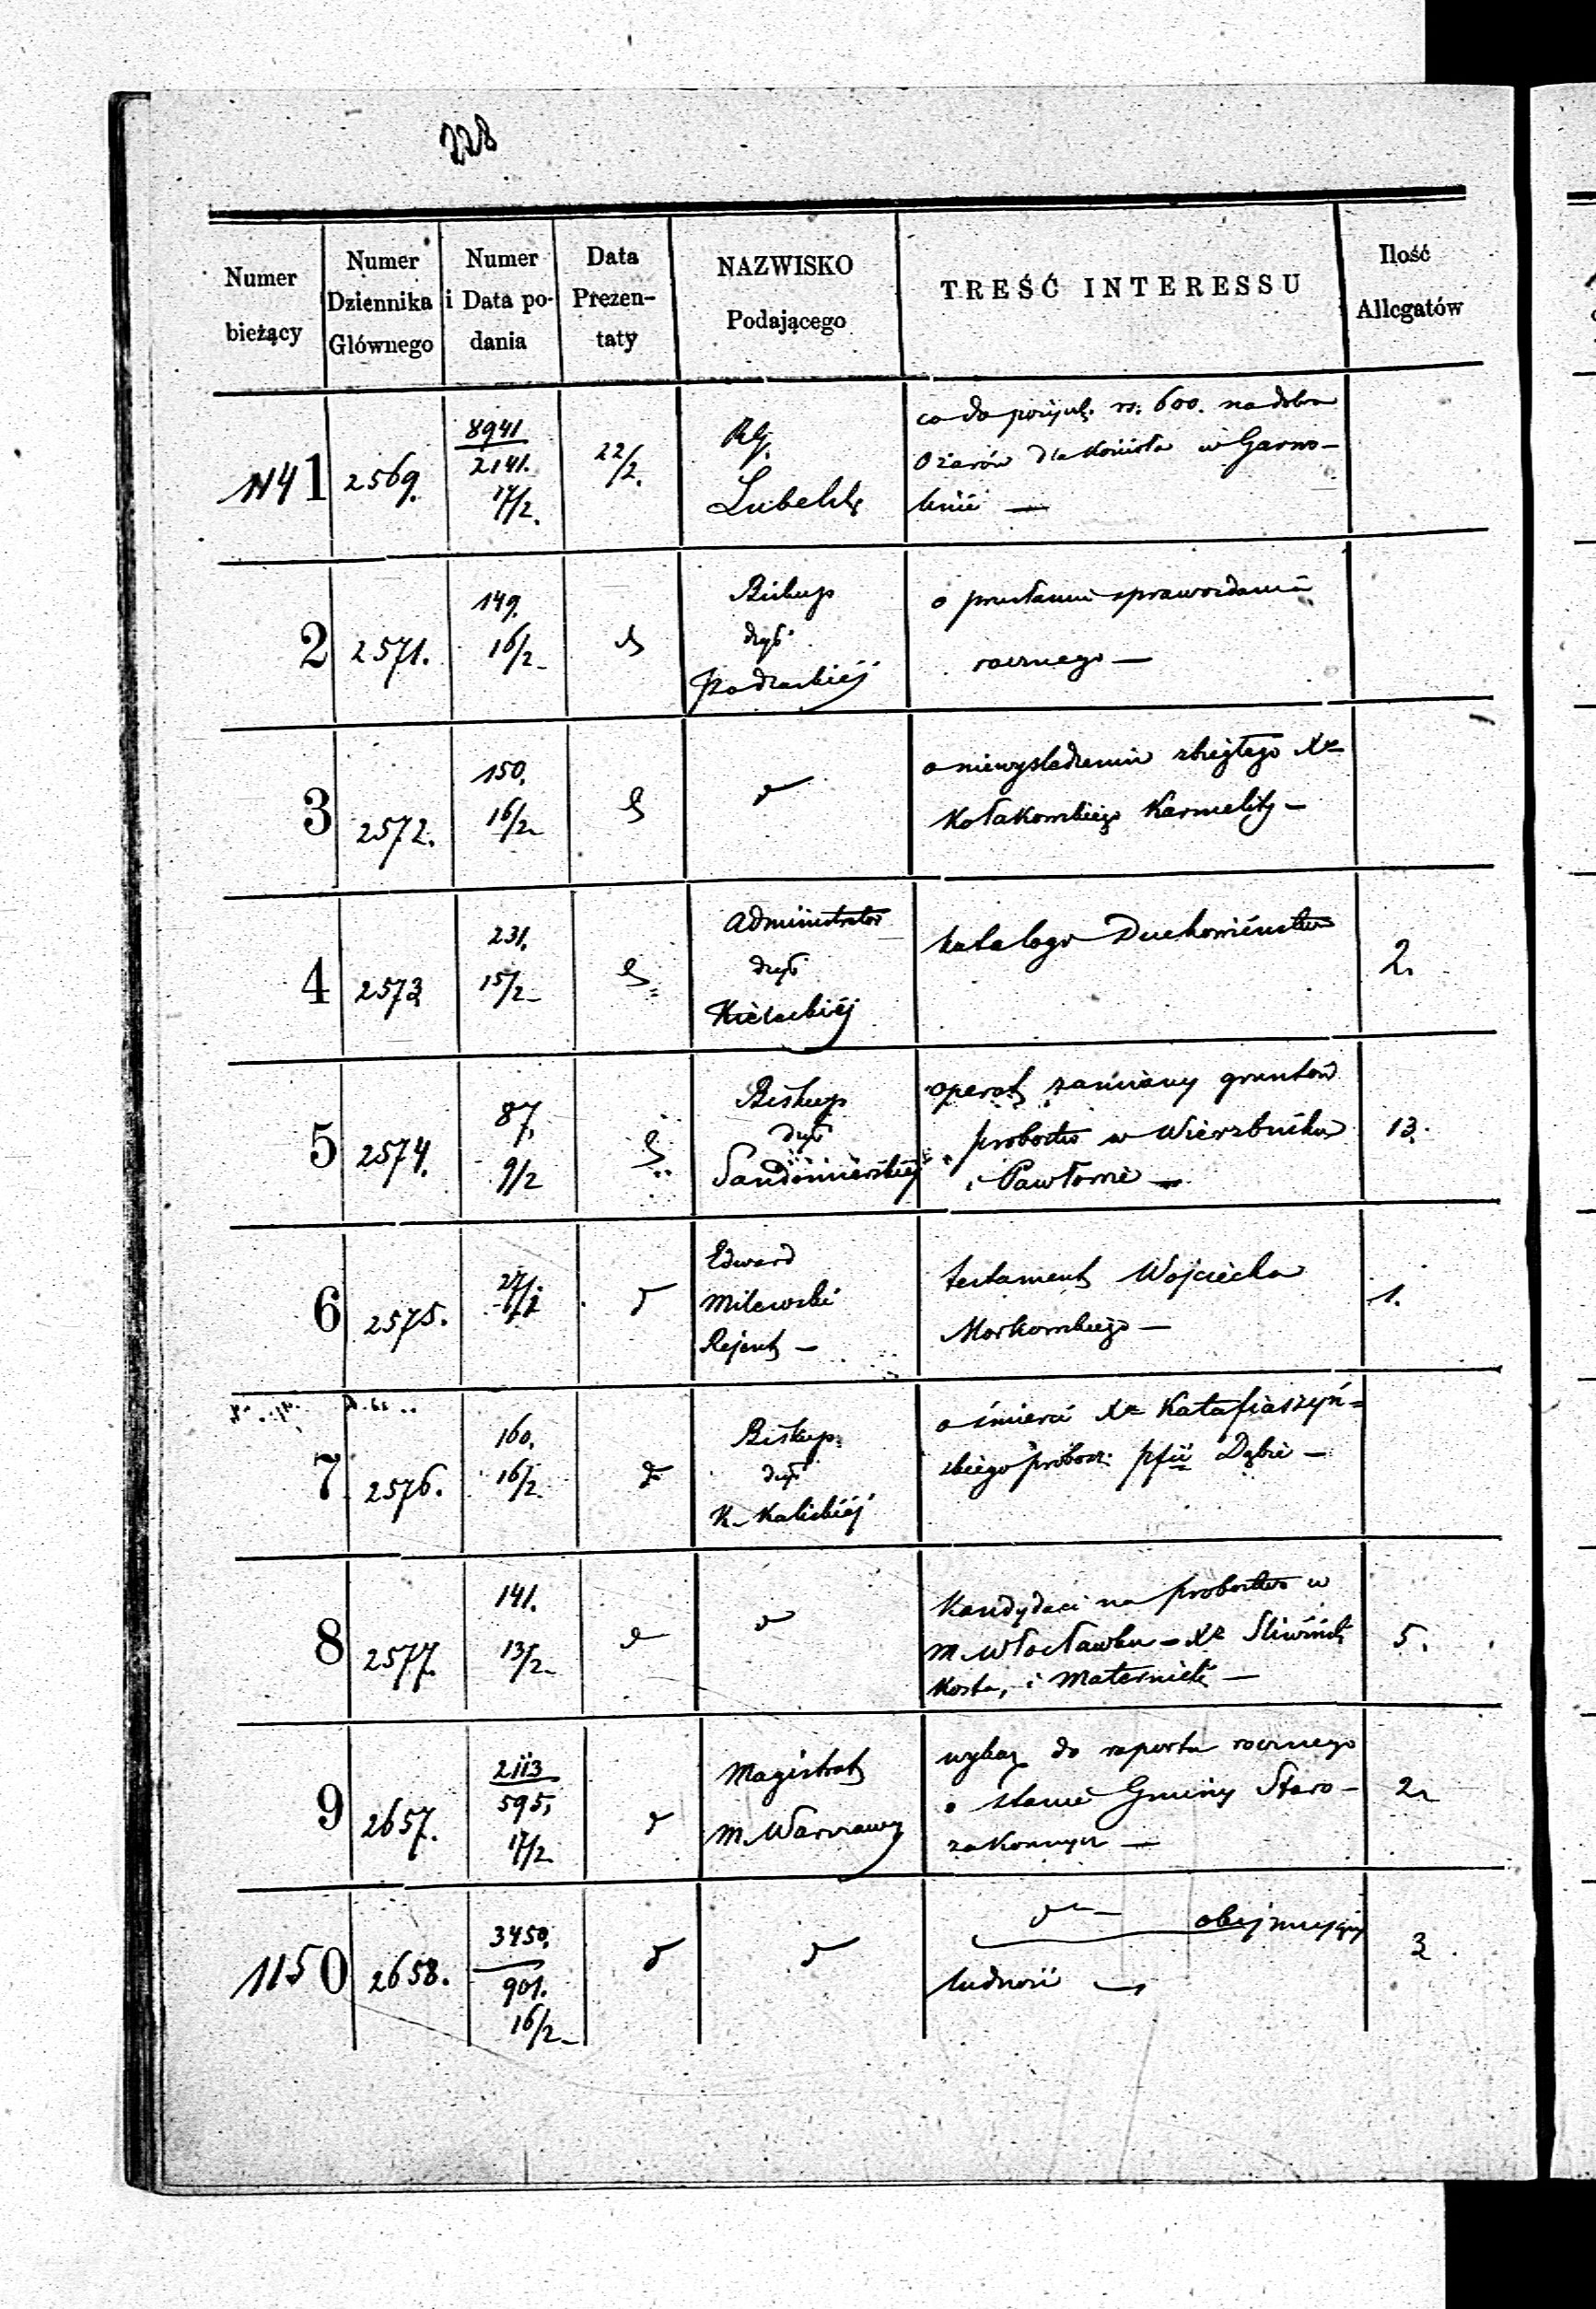 228
Numer bieżący
Numer Dziennika Głównego
Numer i Data podania
Data Prezentaty
NAZWISKO Podającego
TREŚĆ INTERESSU
Ilość Allegatów
1141
2569.
8941
2141.
17/2.
22/2.
Rg.
Lubelski
co do pożycz. rs. 600. na dobra
Ożarów dla Kościoła w Garwo-
linie —
2
2571.
149.
16/2
Biskup
dyec
Podlaskiéj
o przesłaniu sprawozdania
rocznego —
3
2572.
150.
16/2
o niewyśledzeniu zbiegłego Xa
Kołakowskiego Karmelity —
4
2573
231.
15/2
Administrator
dyec
Kieleckiéj
katalogi Duchowieństwa
2.
5
2574.
87.
9/2
Biskup
dyec
Sandomierskiéj
operat zamiany gruntów
probostw w Wierzbniku
i Pawłowie —
13.
6
2575.
Edward
Milewski
Rejent —
testament Wojciecha
Morkowskiego —
1.
7
2576.
160.
16/2
Biskup
dyec
K. Kaliskiéj
o śmierci Xa Katafiaszyń=
skiego probosz. pfii Dąbie —
8
2577.
141.
13/2
Kandydaci na probostwo w
m. Włocławku — Xa Śliwiński
Kosta, i Maternicki —
5.
9
2657.
2113
595.
17/2
Magistrat
m. Warszawy
wykaz do raportu rocznego
o stanie Gminy Staro-
zakonnych —
2
1150
2658.
3450.
901.
16/2
obejmujący
ludność —
3